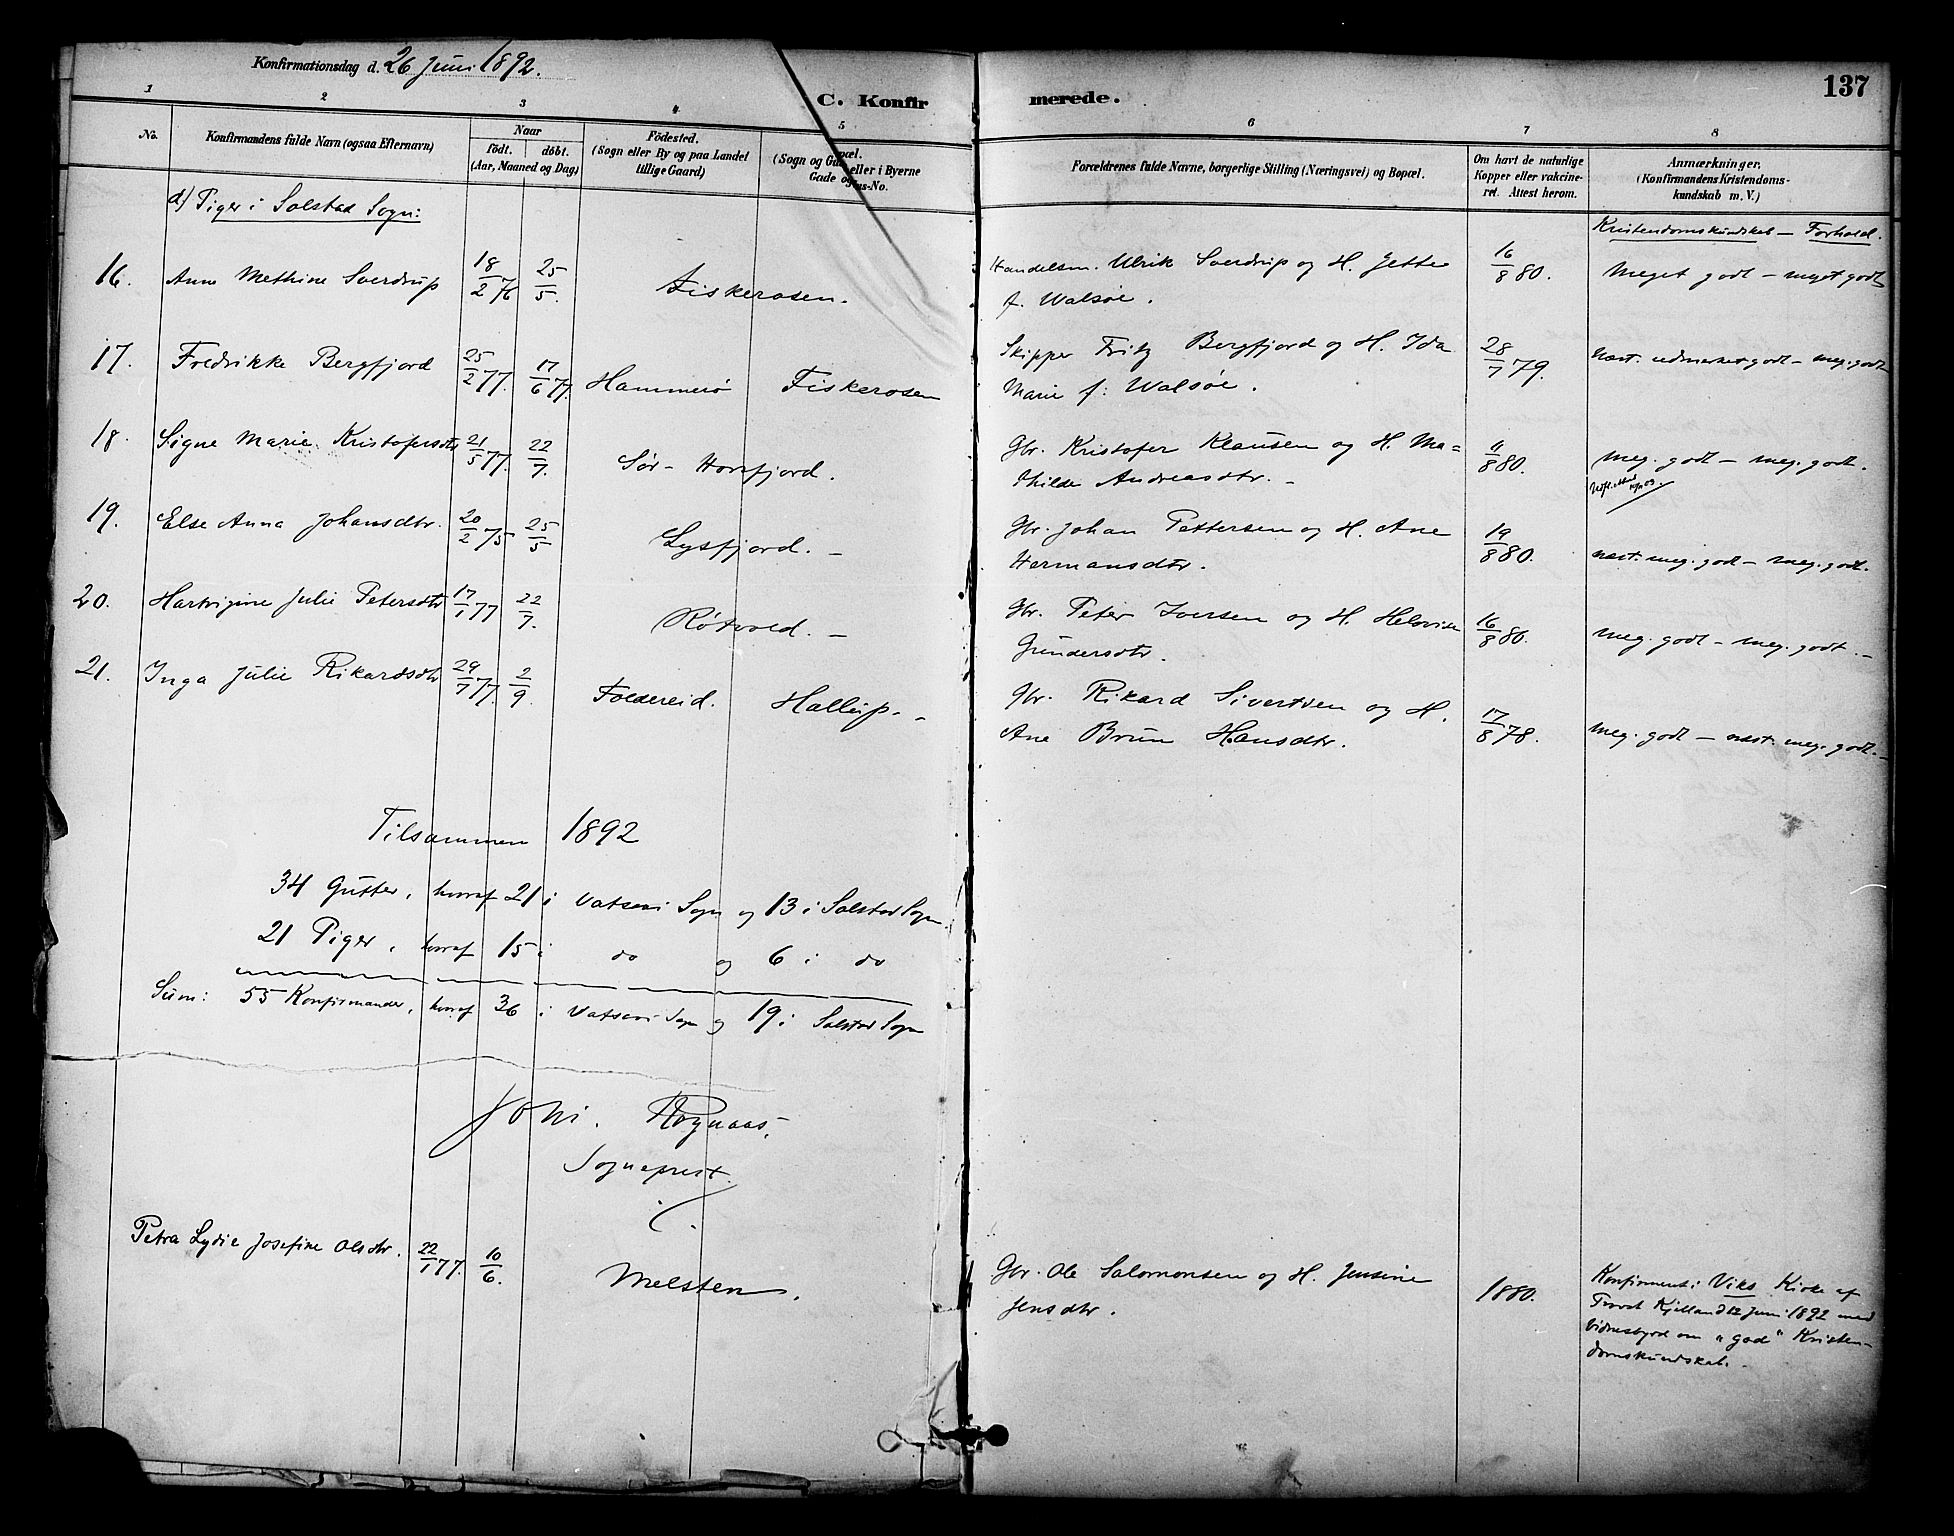 Konfirmationsdag d. 26 Juni 1892.
C. Konfirmerede.
137
1 2 3 4 5 6 7 8
No.
Konfirmandens fulde Navn (ogsaa Efternavn)
Naar
födt. döbt.
(Aar, Maaned og Dag)
Födested.
(Sogn eller By og paa Landet
tillige Gaard)
(Sogn og eller i Byerne
Gade og No.
Forældrenes fulde Navne, borgerlige Stilling (Næringsvei) og Bopæl.
Om havt de naturlige
Kopper eller vakcine-
ret. Attest herom.
Anmærkninger.
(Konfirmandens Kristendoms-
kundskab m. V.)
d) Piger i Solstad Sogn:
Kristendomskundskab – Forhold.
16. Anne Methine Sverdrup 18/2 76 25/5. Fiskerosen. Handelsm. Ulrik Sverdrup og H. Jette 16/8 80. Meget godt – meget godt
f. Walsøe.
17. Fredrikke Bergfjord 25/2 77. 17/6 77. Hammerø Fiskerosen Skipper Fritz Bergfjord og H. Ida 28/7 79. næst. udmærket godt – meg. godt
Marie f. Walsøe.
18. Signe Marie Kristofersdtr 21/5 77. 22/7. Sør-Horsfjord. Gbr. Kristofer Klausen og H. Ma- 11/8 80. meg. godt – meg. godt.
thilde Andreasdtr. –
19. Else Anna Johansdtr. 20/2 75 25/5 Lysfjord. – Gbr. Johan Pettersen og H. Ane 19/8 80. næst. meg. godt – meg. godt.
Hermansdtr.
20. Hartvigine Julie Petersdtr 17/1 77 22/7. Røtvold. – Gbr. Peter Iversen og H. Helovise 16/8 80. meg. godt – meg. godt. –
Gundersdtr.
21. Inga Julie Rikardsdtr 29/7 77. 2/9. Foldereid. Hallup. – Gbr. Rikard Sivertsen og H. 17/8 78. meg. godt – næst. meg. godt. –
Ane Brun Hansdtr.
Tilsammen 1892
34 Gutter, hvoraf 21 i Vatsøen Sogn og 13 i Solstad Sogn
21 Piger, hvoraf 15 i do og 6 i do
Sum: 55 Konfirmander, hvoraf 36 i Vatsøen Sogn og 19 i Solstad Sogn
Joh. Rognaas,
Sogneprest.
Petra Lydie Josefine Olsdtr. 22/1 77. 10/6. Melsten. Gbr. Ole Salomonsen og H. Jensine 1880. Konfirmert i Viks Kirke af
Jensdtr. Provst Kjelland 12 Juni 1892 med
Vidnesbyrd om "god" Kristen-
domskundskab.